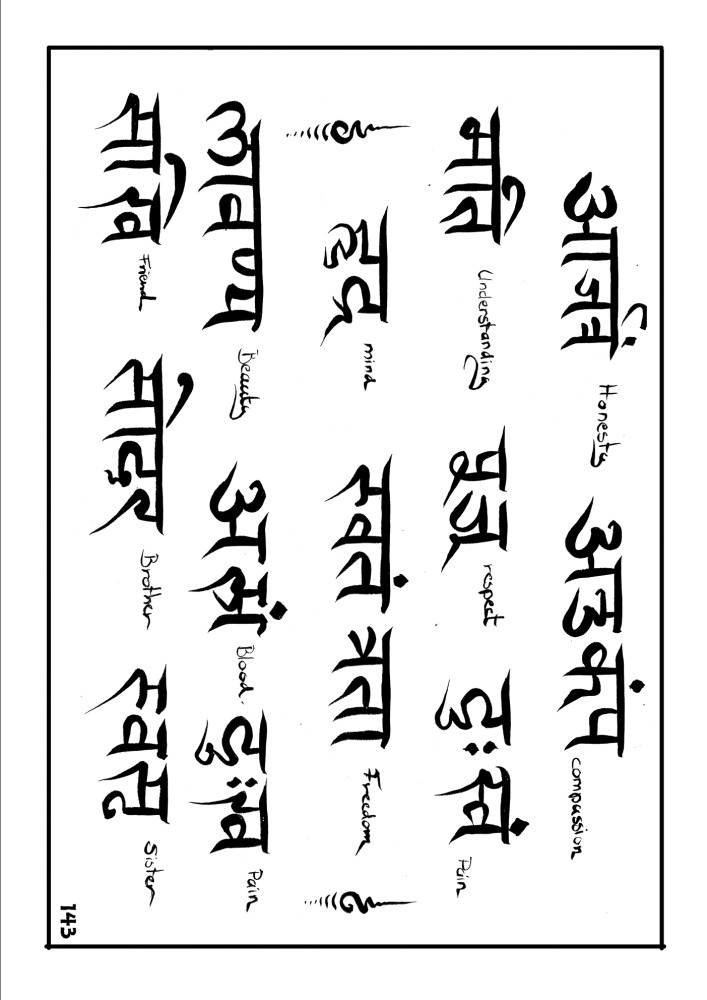 आर्जवं Honesty अउकंप compassion
मति Understanding पूज respect दुःखं Pain
हृद mind स्वतं त्रता Freedom
लावण्य Beauty Blood. दुःख Pain
Friend सोदर Brother स्वसृ Sister
143